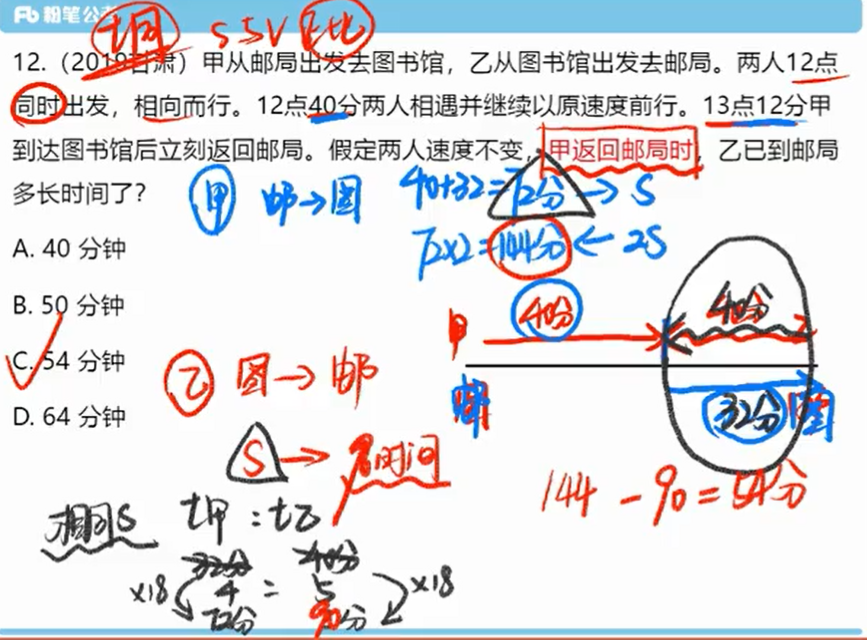 粉笔公考
t同 S与V正比
12.（2019甘肃）甲从邮局出发去图书馆，乙从图书馆出发去邮局。两人12点
同时出发，相向而行。12点40分两人相遇并继续以原速度前行。13点12分甲
到达图书馆后立刻返回邮局。假定两人速度不变，甲返回邮局时，乙已到邮局
多长时间了？
甲 邮→图 40+32=72分→S
72×2=144分←2S
A. 40 分钟
B. 50 分钟
C. 54 分钟
D. 64 分钟
甲 40分 40分
邮 32分 图
乙 图→邮
S→多时间
144-90=54分
相同S t甲:t乙
32分 40分
×18 4 = 5 ×18
72分 90分